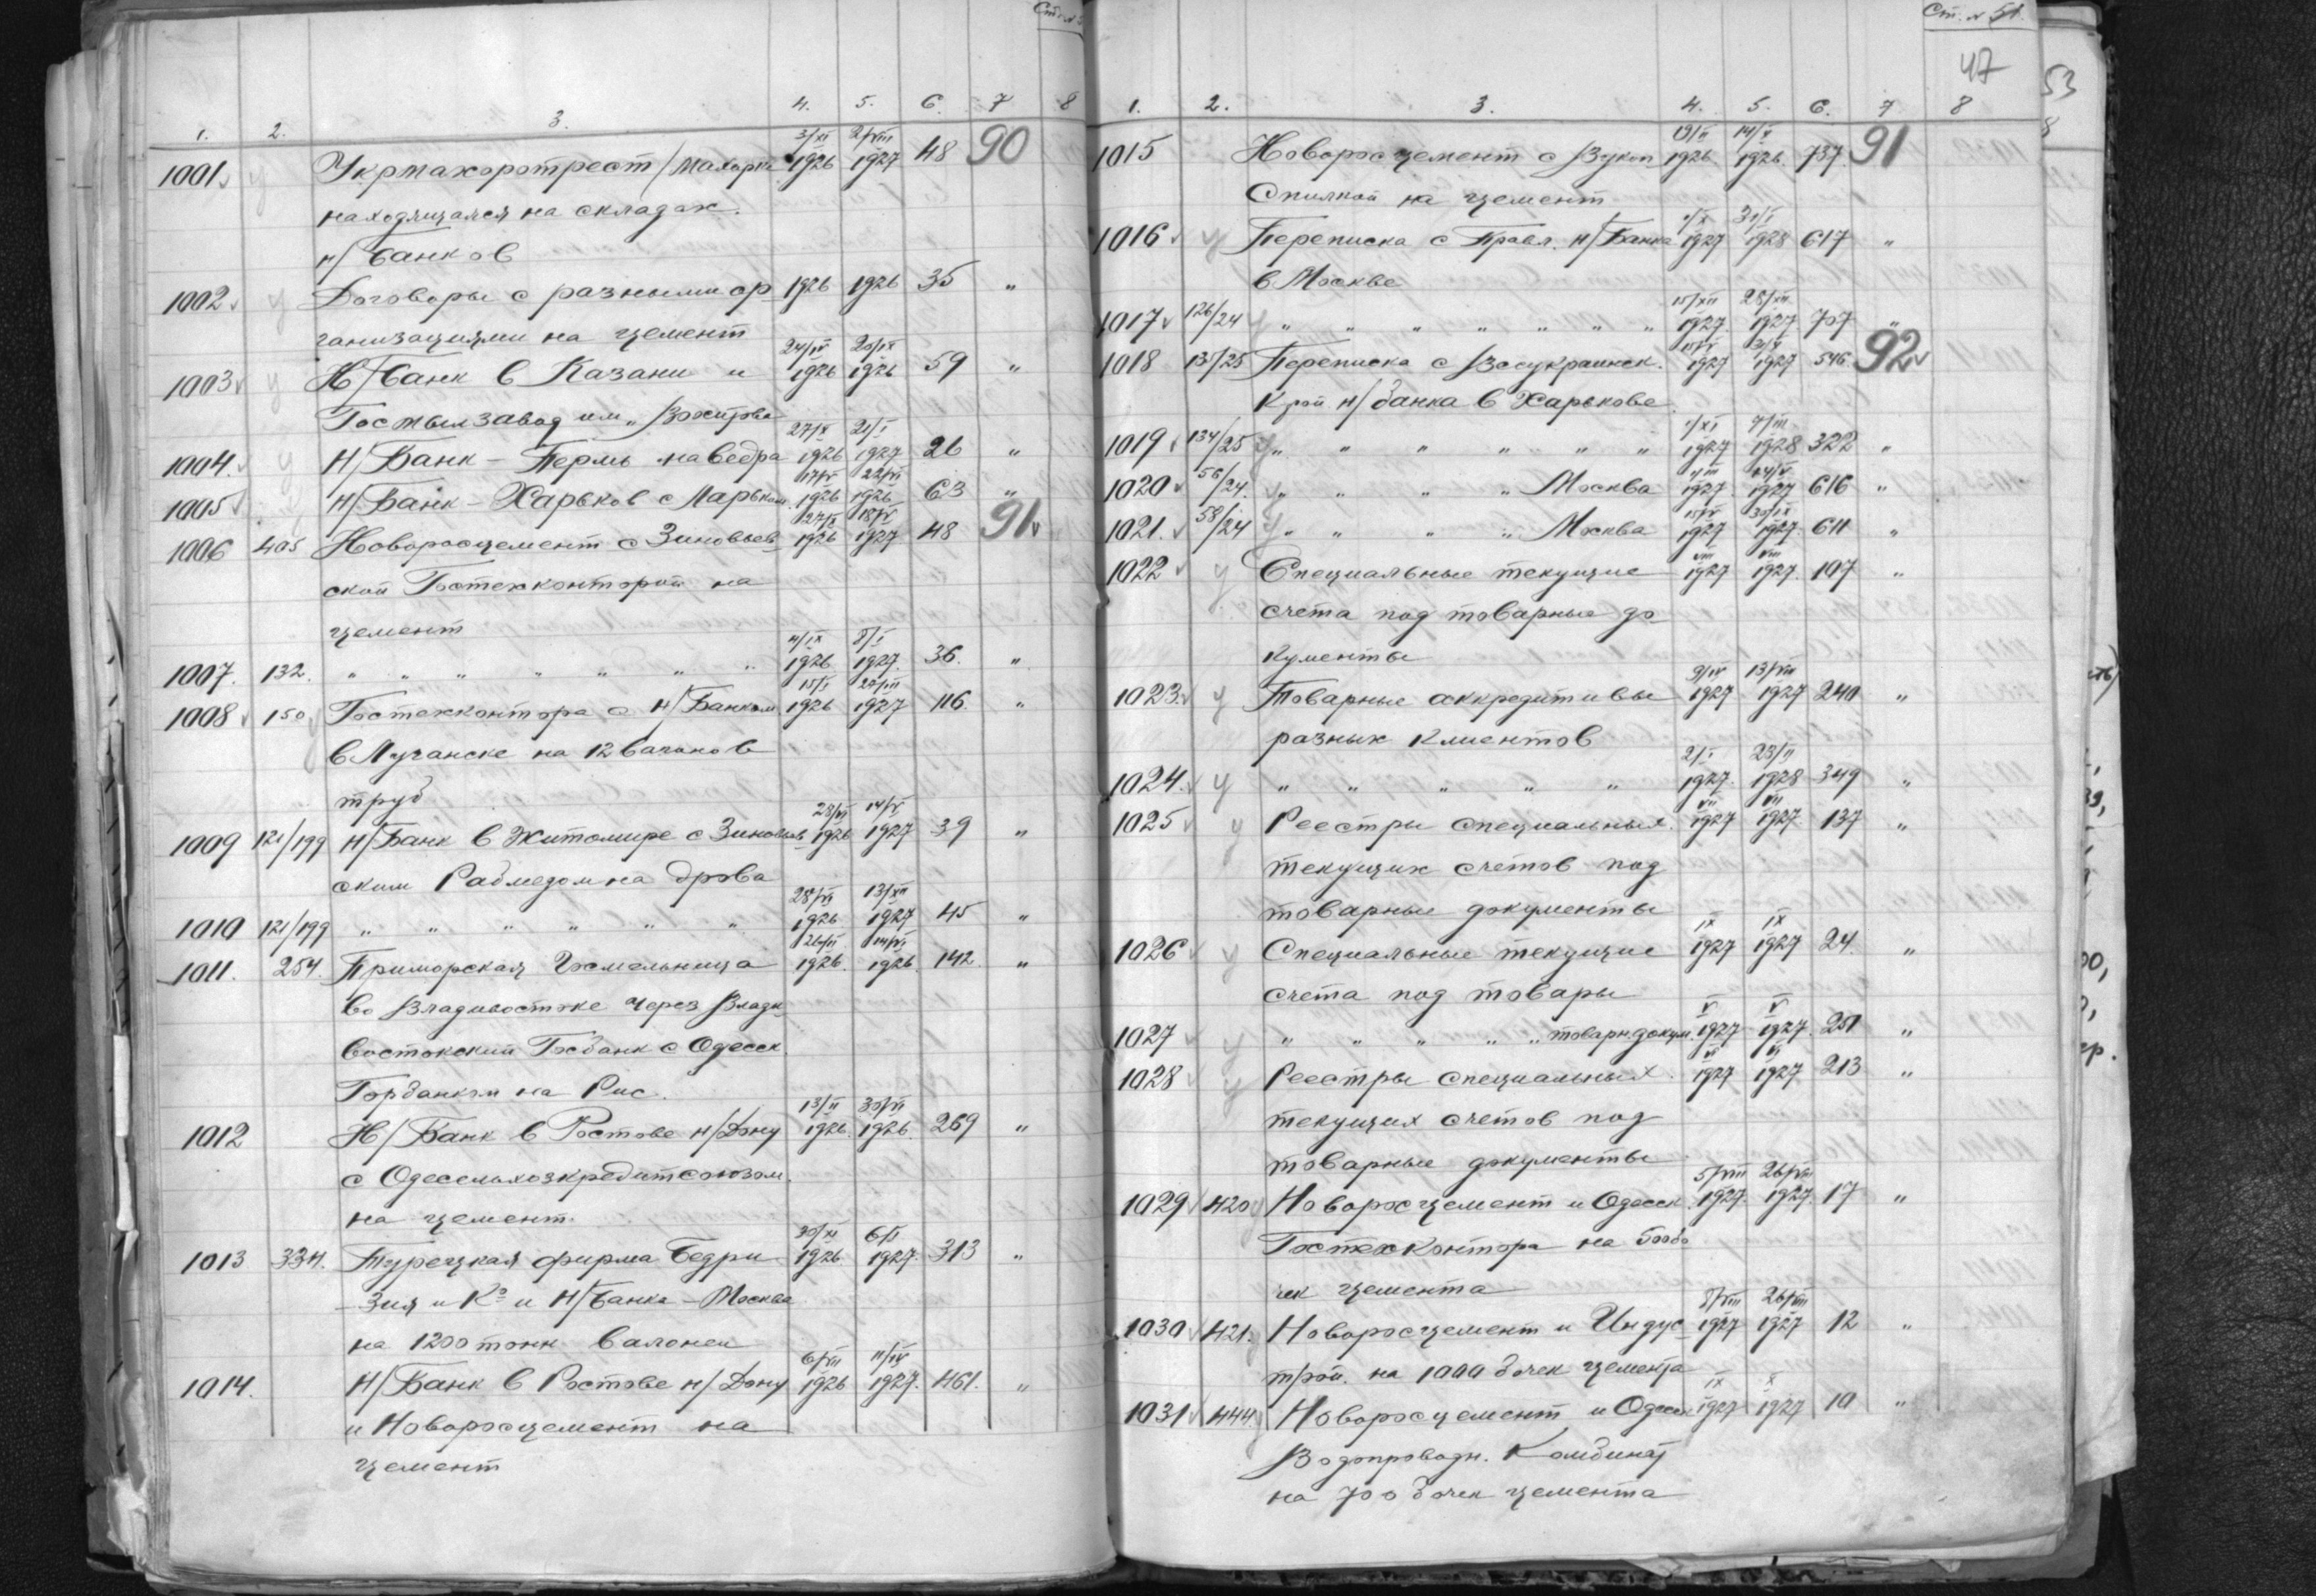 1. 2. 3. 4. 5. 6. 7 8
1001 Укрмахоротрест /Махорка 3/XI 1926 2/VIII 1927 48 90
находящаяся на складах
н/Банков
1002 Договоры с разными ор 1926 1926 35 "
ганизациями на цемент
1003 Н/Банк в Казани и 24/IV 1926 20/IX 1926 59 "
Гостмылзавод им.
1004. Н/Банк – Пермь на ведра 27/X 1926 21/I 1927 26 "
1005 Н/Банк – Харьков с 17/IV 1926 22/VI 1926 63 "
1006 405 Новоросцемент с Зиновьев 27/X 1926 18/IV 1927 48 91
ской Гостехконторой на
цемент
1007. 132. " " " " " " " 4/IX 1926 8/I 1927. 36. "
1008 150 Гостехконтора с Н/Банком 15/I 1926 1927 116. "
в Луганске на 12 вагонов
труб
1009 121/199 Н/Банк в Житомире с Зиновьев 28/VI 1926 14/V 1927 39 "
ским Рабмедом на дрова
1010 121/199 " " " " " " 28/VI 1926 13/XII 1927 45 "
1011. 254. Приморская Госмельница 1926. 1926. 142. "
во Владивостоке через Влади
востокский Госбанк с Одесск.
Горбанком на Рис.
1012 Н/Банк в Ростове н/Дону 13/II 1926. 30/VI 1926. 269 "
с Одессельхозкредитсоюзом
на цемент.
1013 334. Турецкая фирма Бедри 30/XI 1926 1927. 313 "
– Зия и К° и Н/Банка – Москва
на 1200 тонн валонеи
1014. Н/Банк в Ростове н/Дону 6/VII 1926 11/IV 1927. 461. "
и Новоросцемент на
цемент
Ст. N 51.
47
1. 2. 3. 4. 5. 6. 7 8
1015 Новоросцемент с Вукоп 19/II 1926 14/X 1926. 737. 91
Спилкой на цемент
1016 Переписка с Правл. Н/Банка 1/X 1927 31/I 1928 617 "
в Москве
1017 126/24 " " " " " " " 15/XII 1927. 28/XII 1927 707 "
1018 135/25 Переписка с Всеукраинск. 1927 1927 546. 92
К рой н/банка в Харькове
1019 134/25 " " " " " " 1/XI 1927 7/III 1928 322 "
1020 56/24. " " " " Москва 1927. 1927 616 "
1021. 58/24 " " " " Москва 15/IV 1927 30/IX 1927. 611 "
1022 Специальные текущие VIII 1927 VIII 1927. 107 "
счета под товарные до
кументы
1023. Товарные аккредитивы 9/IV 1927 13/VIII 1927 240 "
разных клиентов
1024. " " " " " 2/I 1927. 23/II 1928 349 "
1025 Реестры специальных. VII 1927 VII 1927. 137 "
текущих счетов под
товарные документы
1026 Специальные текущие IX 1927 IX 1927 24. "
счета под товары
1027 " " " " " товарн. докум. V 1927 V 1927. 251 "
1028 Реестры специальных. VI 1927 VI 1927 213 "
текущих счетов под
товарные документы
1029 420 Новоросцемент и Одесск. 5/VIII 1927. 26/VIII 1927. 17 "
Гостехконтора на боч
ек цемента
1030 421. Новоросцемент и Индус 8/VIII 1927 26/VIII 1927 12 "
трой. на 1000 бочек цемента
1031 444. Новоросцемент и Одесск IX 1927 X 1927 10 "
Водопроводн. Комбинат
на 700 бочек цемента
53
8